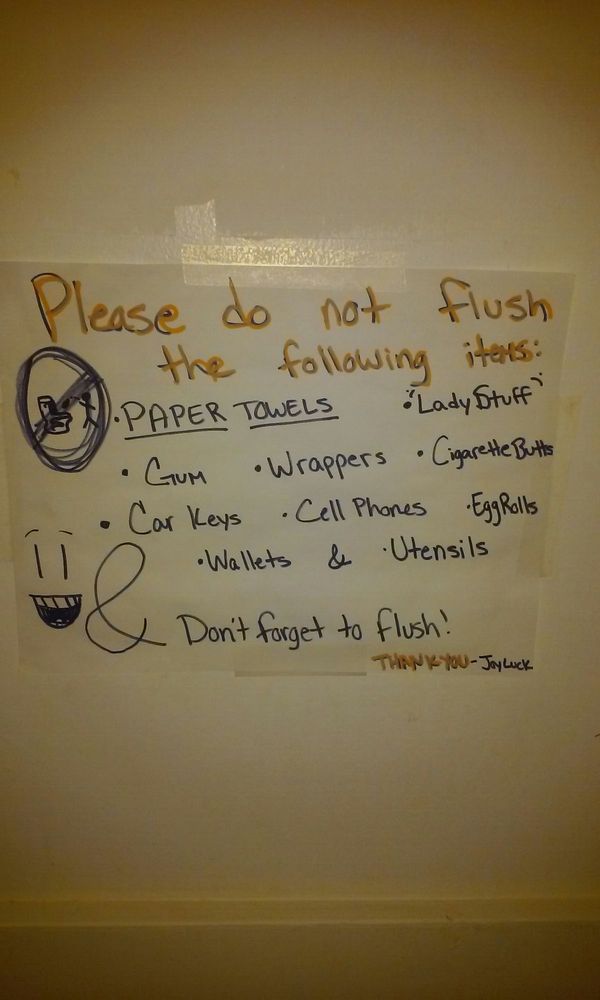 Please do not flush
the following items:
• PAPER TOWELS • "Lady Stuff"
• GUM • Wrappers • Cigarette Butts
• Car Keys • Cell Phones • Egg Rolls
• Wallets & • Utensils
& Don't forget to flush!
THANK YOU - Joy Luck